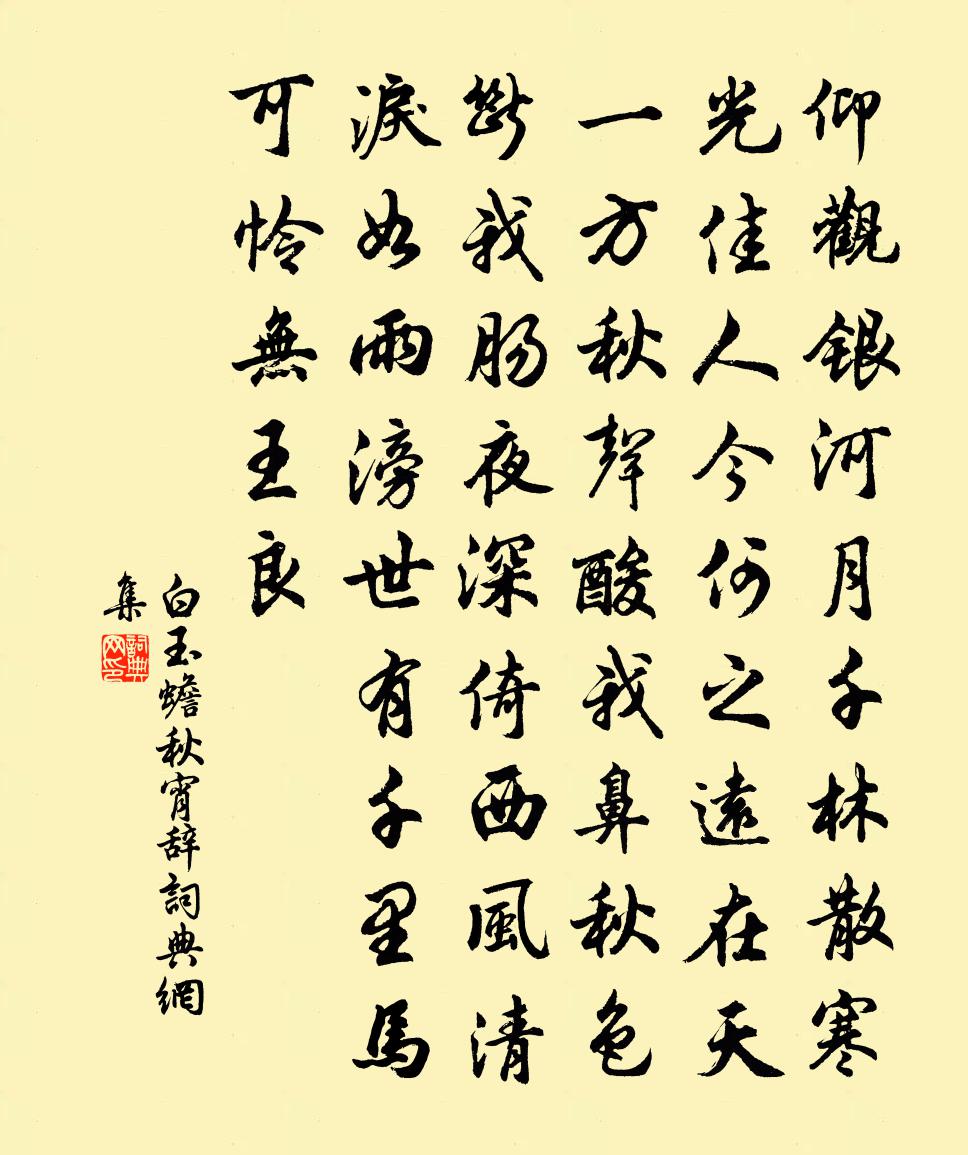 仰觀銀河月千林散寒
光佳人今何之遠在天
一方秋聲酸我鼻秋色
斷我肠夜深倚西風清
淚如雨滂世有千里馬
可憐無王良
白玉蟾秋宵辞詞典網
集
詞典網印